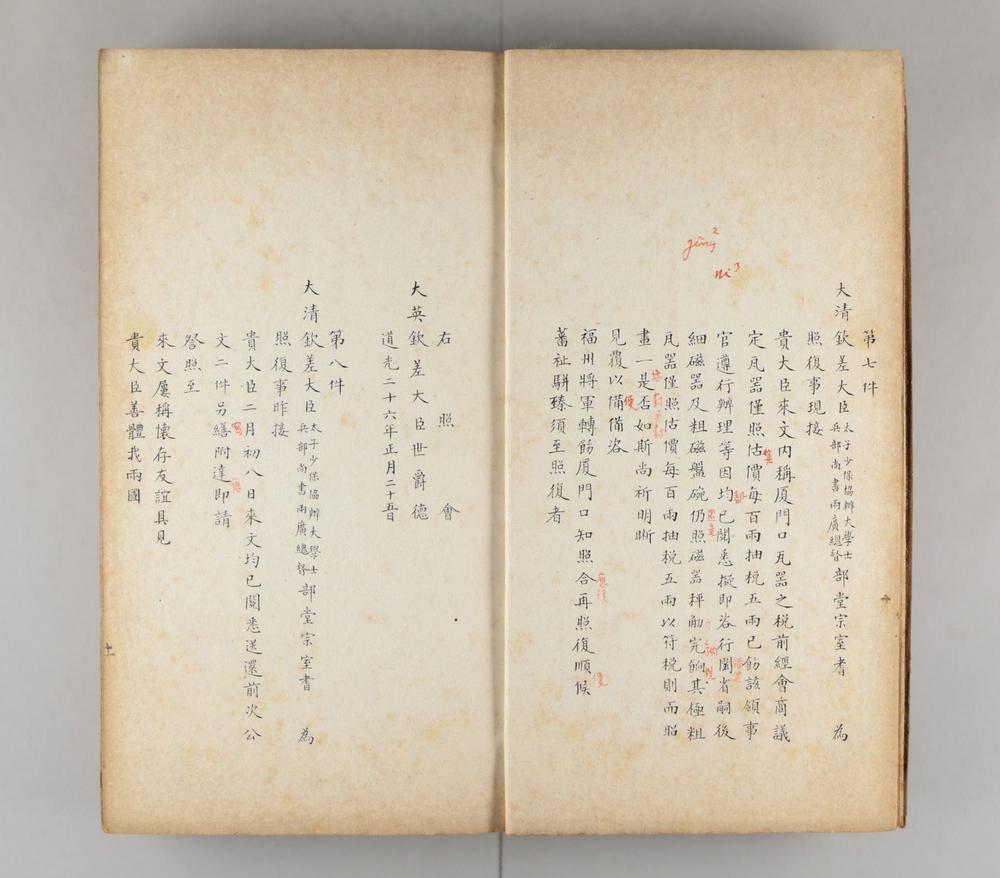 第七件
大清欽差大臣太子少保協辦大學士兵部尚書兩廣總督部堂宗室耆 為
照復事現接
貴大臣來文內稱厦門口瓦器之税前經會商議
定瓦器僅照估價每百兩抽税五兩已飭該領事
官遵行辦理等因均已閱悉擬即咨行閩省嗣後
細磁器及粗磁盤碗仍照磁器秤觔完餉其極粗
瓦器僅照估價每百兩抽税五兩以符税則而昭
畫一是否如斯尚祈明晰
見覆以備備咨
福州將軍轉飭厦門口知照合再照復順候
蕃祉駢臻須至照復者
右照會
大英欽差大臣世爵德
道光二十六年正月二十五日
第八件
大清欽差大臣太子少保協辦大學士兵部尚書兩廣總督部堂宗室耆 為
照復事昨接
貴大臣二月初八日來文均已閱悉送還前次公
文二件另繕附達即請
詧照至
來文屢稱懷存友誼具見
貴大臣善體我兩國
jêng²
ni³
便